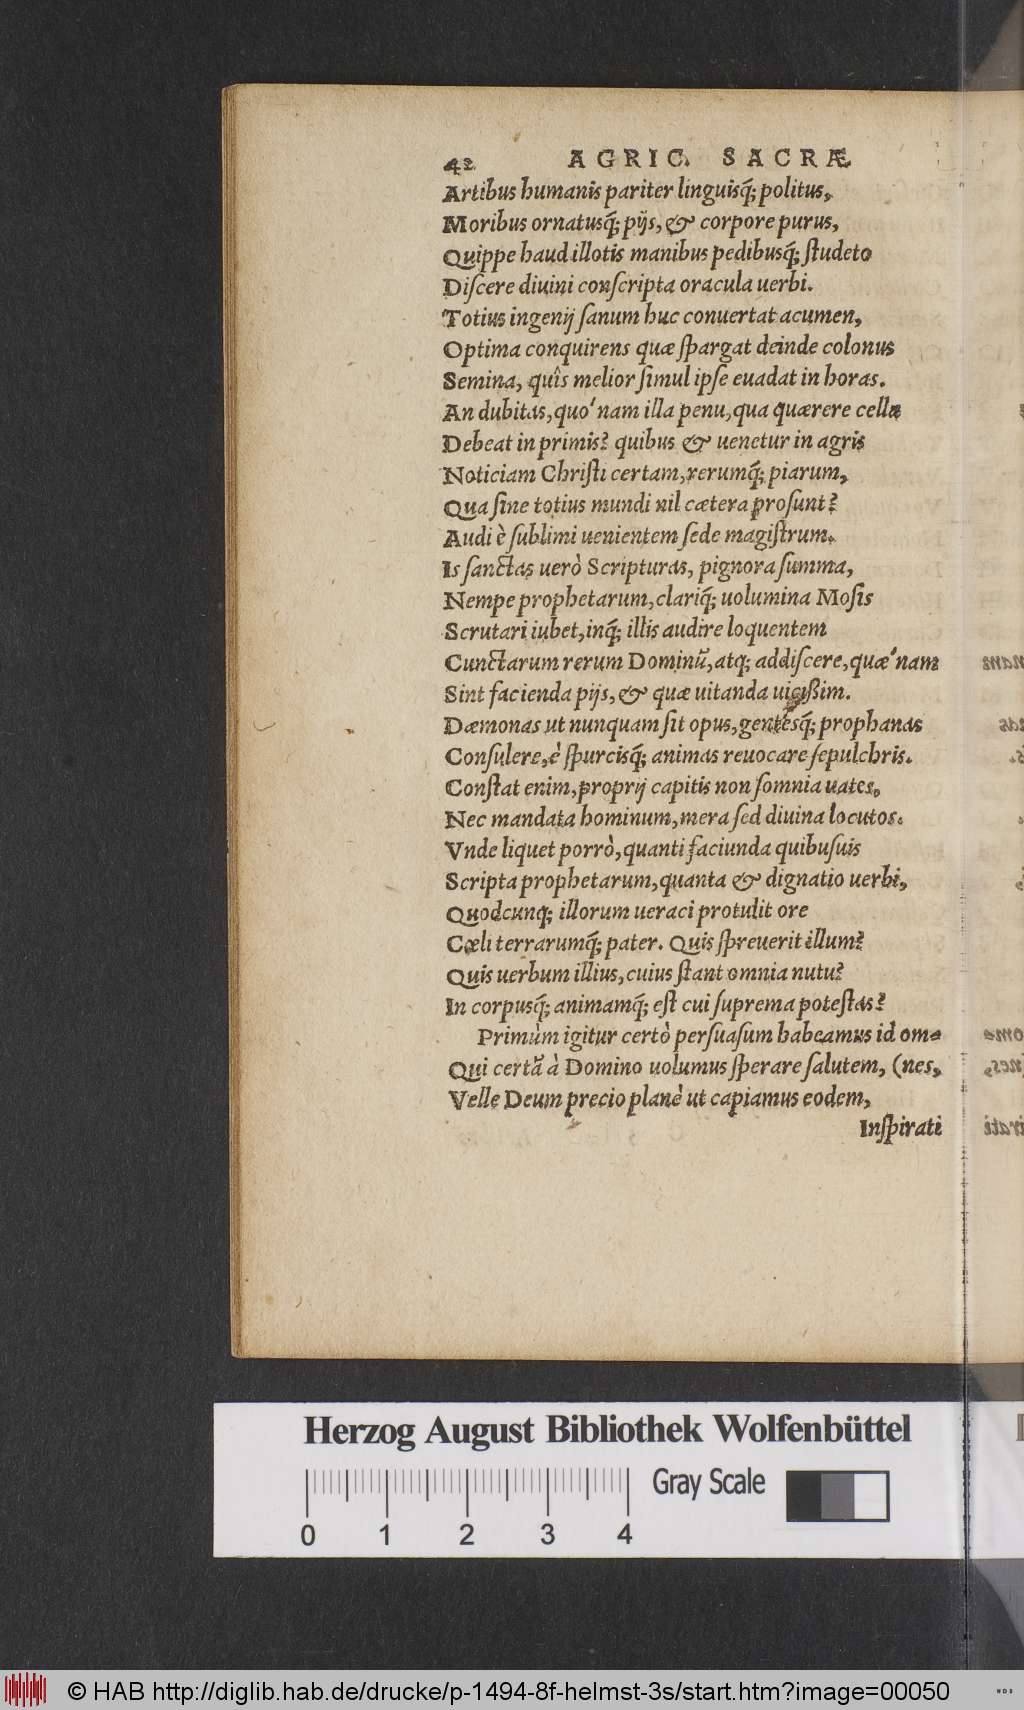 42 AGRIC. SACRÆ
Artibus humanis pariter linguisq́; politus,
Moribus ornatusq́; pijs, & corpore purus,
Quippe haud illotis manibus pedibusq́; ſtudeto
Diſcere diuini conſcripta oracula uerbi.
Totius ingenij ſanum huc conuertat acumen,
Optima conquirens quæ ſpargat deinde colonus
Semina, quîs melior ſimul ipſe euadat in horas.
An dubitas, quo'nam illa penu, qua quærere cella
Debeat in primis? quibus & uenetur in agris
Noticiam Chriſti certam, rerumq́; piarum,
Qua ſine totius mundi nil cætera proſunt?
Audi è ſublimi uenientem ſede magiſtrum.
Is ſanctas uerò Scripturas, pignora ſumma,
Nempe prophetarum, clariq́; uolumina Moſis
Scrutari iubet, inq́; illis audire loquentem
Cunctarum rerum Dominũ, atq; addiſcere, quæ'nam
Sint facienda pijs, & quæ uitanda uicißim.
Dæmonas ut nunquam ſit opus, gentesq́; prophanas
Conſulere, è ſpurcisq́; animas reuocare ſepulchris.
Conſtat enim, proprij capitis non ſomnia uates,
Nec mandata hominum, mera ſed diuina locutos.
Vnde liquet porrò, quanti faciunda quibuſuis
Scripta prophetarum, quanta & dignatio uerbi,
Quodcunq; illorum ueraci protulit ore
Cœli terrarumq́; pater. Quis ſpreuerit illum?
Quis uerbum illius, cuius ſtant omnia nutu?
In corpusq́; animamq́; eſt cui ſuprema poteſtas?
Primùm igitur certò perſuaſum habeamus id om-
Qui certã à Domino uolumus ſperare ſalutem, (nes,
Velle Deum precio planè ut capiamus eodem,
Inſpirati
Herzog August Bibliothek Wolfenbüttel
Gray Scale
0 1 2 3 4
© HAB http://diglib.hab.de/drucke/p-1494-8f-helmst-3s/start.htm?image=00050